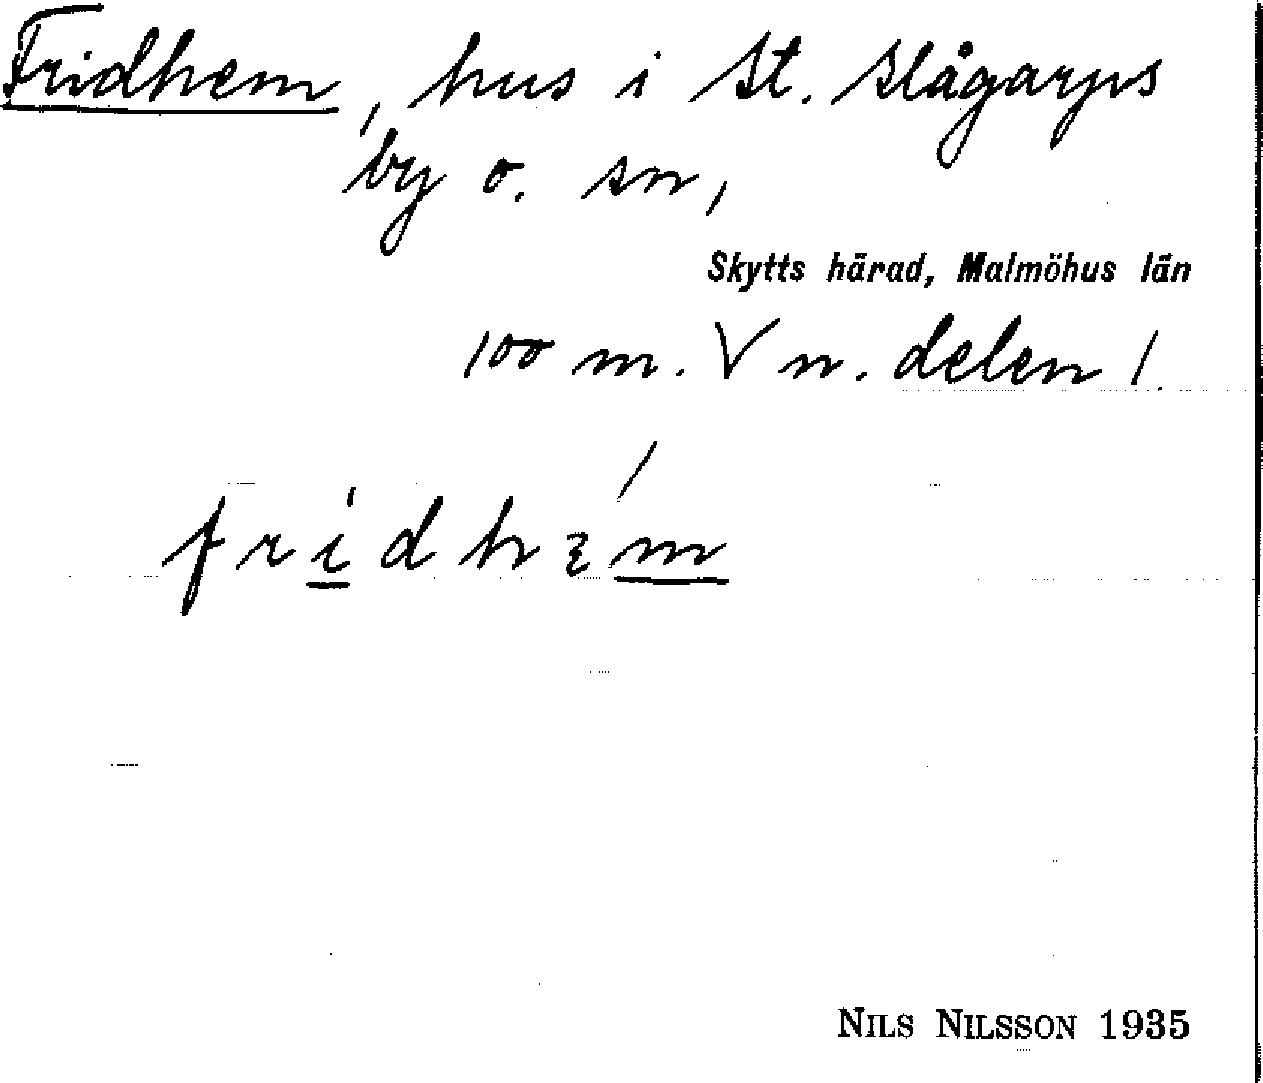 Fridhem, hus i St. Slågarps
by o. sn,
Skytts härad, Malmöhus län
100 m. V n. delen 1.
fridhɛm
NILS NILSSON 1935